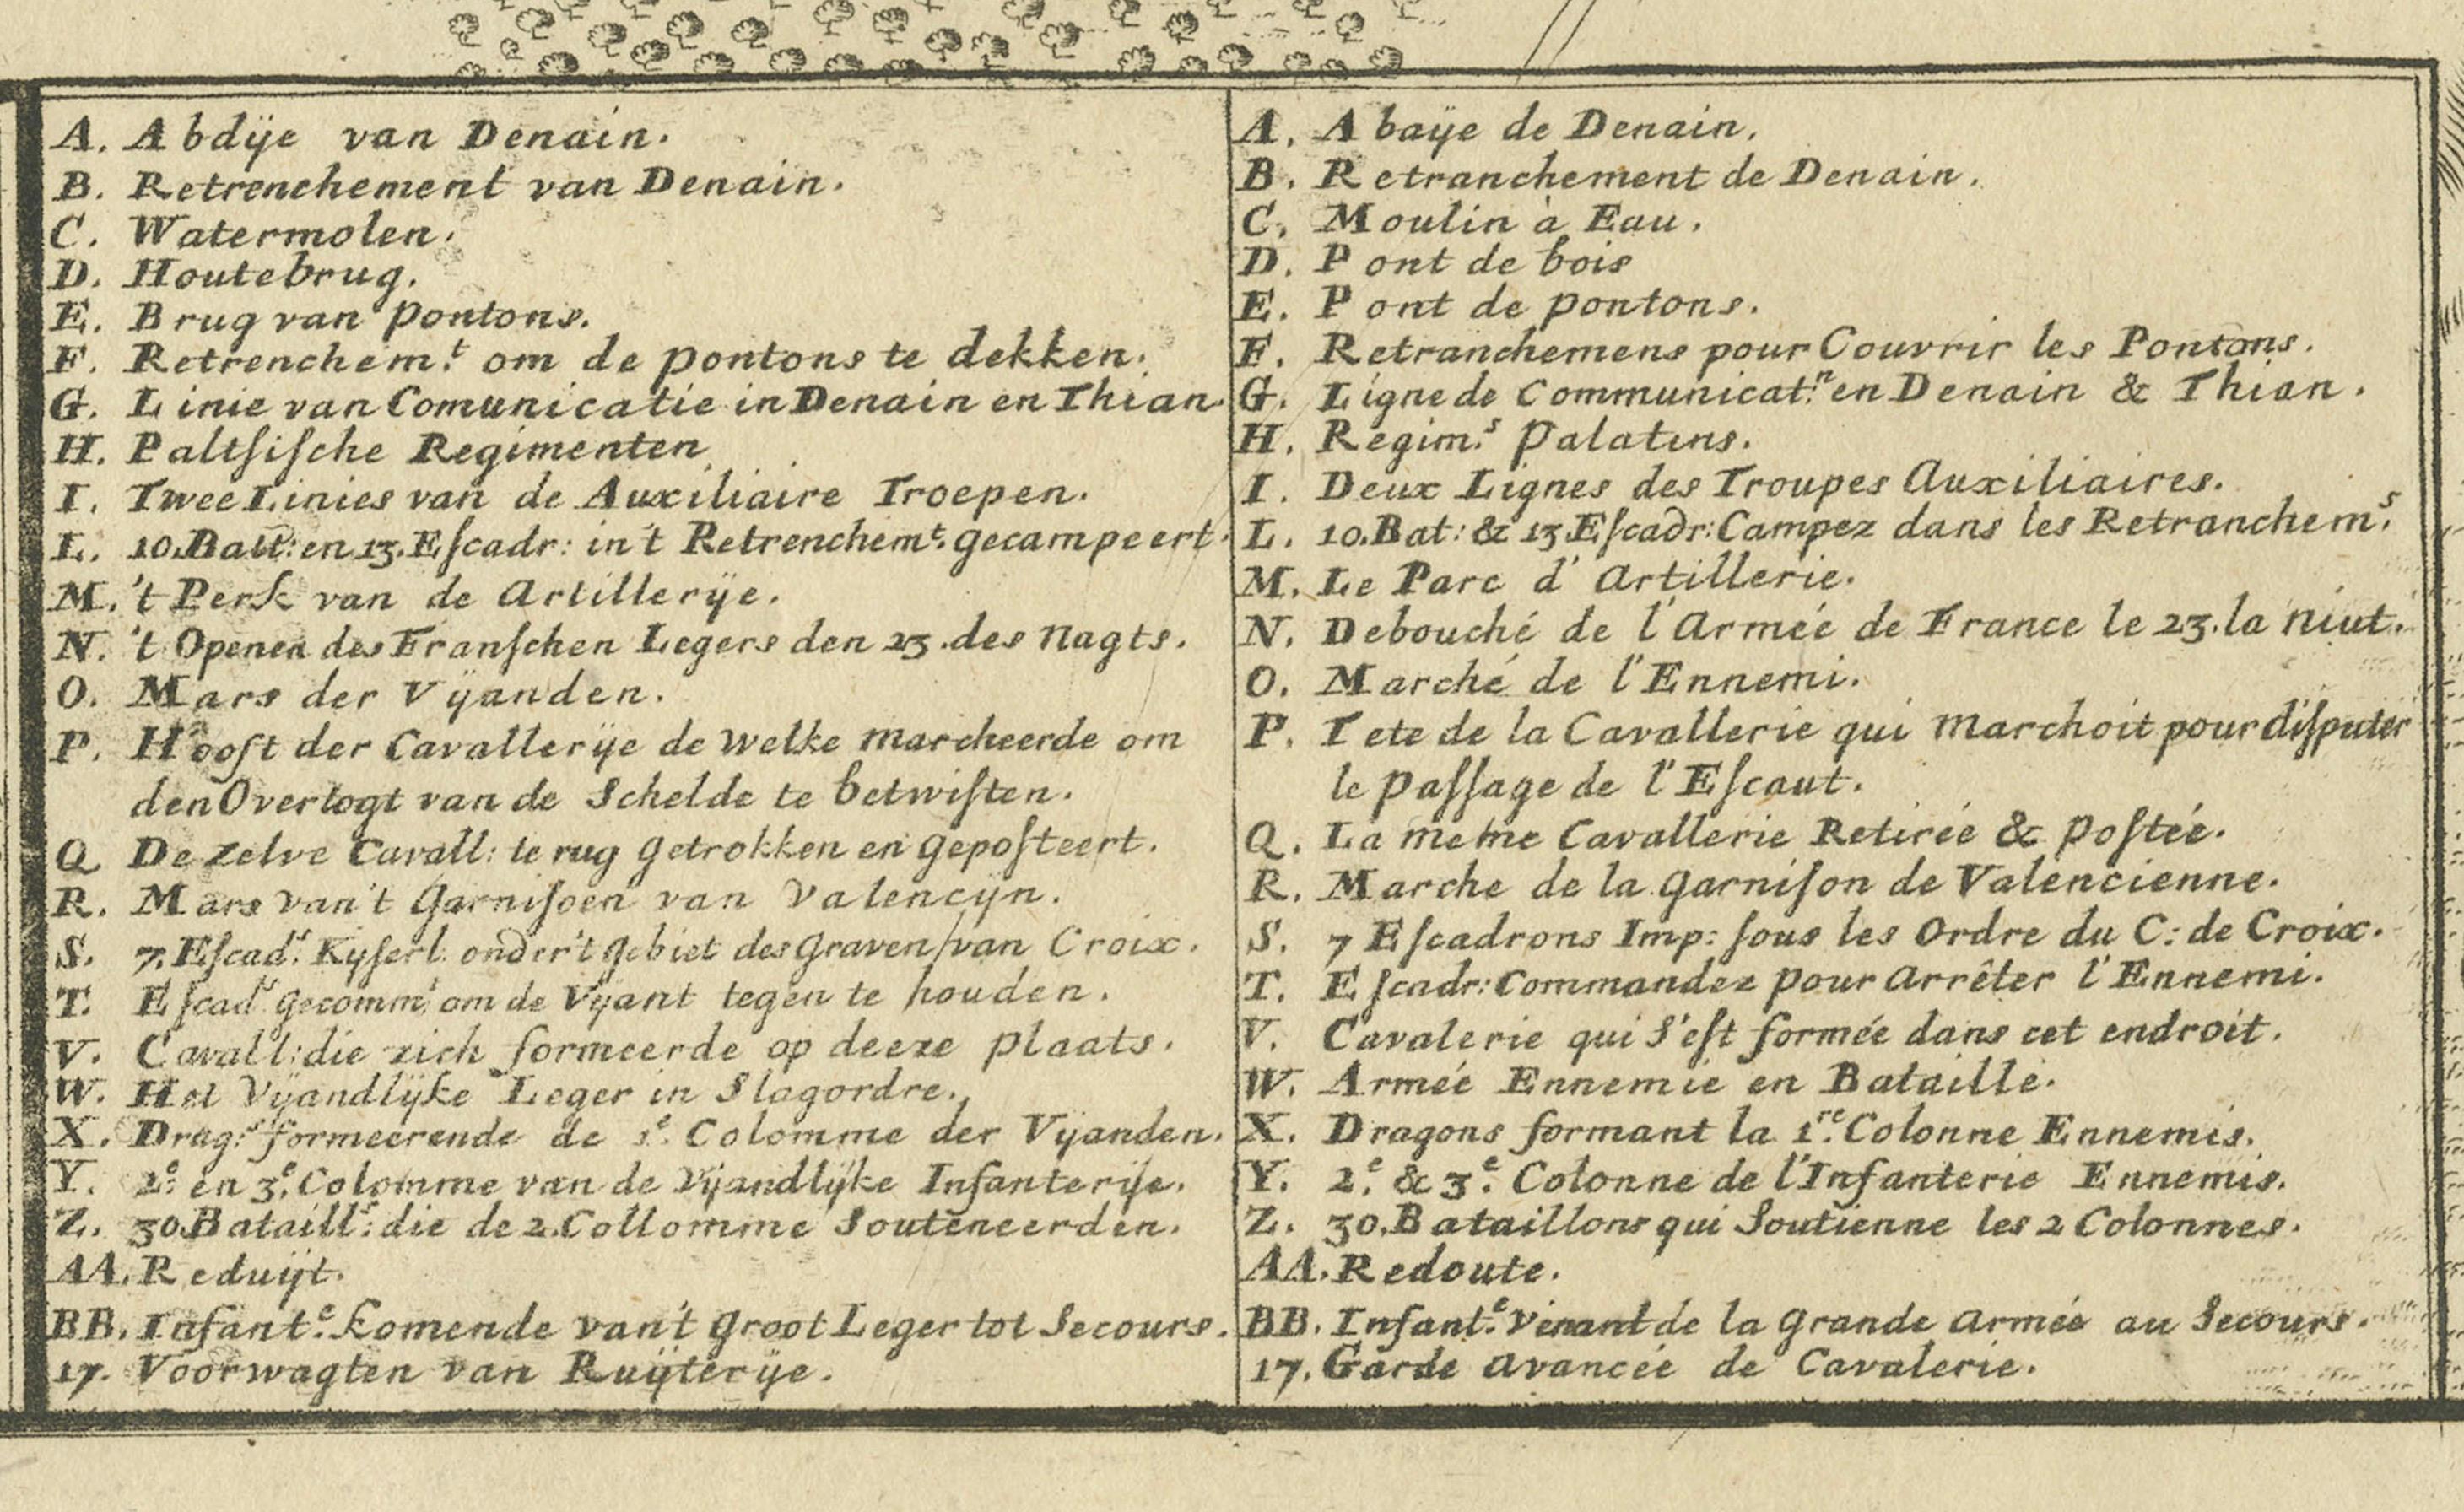 A. Abdÿe van Denain.
B. Retrenchement van Denain.
C. Watermolen.
D. Houtebrug.
E. Brug van pontons.
F. Retrenchem.t om de pontons te dekken.
G. Linie van Comunicatie in Denain en Thian.
H. Paltſiſche Regimenten
I. Twee Linies van de Auxiliaire Troepen.
L. 10. Batt: en 13. Eſcadr: in't Retrenchemt. gecampeert.
M. 't Perk van de Artillerÿe.
N. 't Openen des Franſchen Legers den 23. des Nagts.
O. Mars der Vÿanden.
P. Hooft der Cavallerÿe de welke marcheerde om
den Overtogt van de Schelde te betwiſten.
Q De zelve Cavall: te rug getrokken en gepoſteert.
R. Mars van't Garniſoen van Valencÿn.
S. 7. Eſcad.s Kyſerl: onder't gebiet des Graven van Croix.
T. Eſcad.s gecomm.t om de Vyant tegen te houden.
V. Cavall: die zich formeerde op deeze plaats.
W. Het Vÿandlÿke Leger in Slagordre.
X. Drag:s formeerende de 1e. Colomme der Vÿanden.
Y. 2e. en 3e. Colomme van de Vÿandlÿke Infanterÿe.
Z. 30. Bataill:s die de 2. Collomme Souteneerden.
AA. Reduÿt.
BB. Infant.e komende van't groot Leger tot Secours.
17. Voorwagten van Ruÿterÿe.
A. Abaÿe de Denain.
B. Retranchement de Denain.
C. Moulin à Eau.
D. Pont de bois
E. Pont de pontons.
F. Retranchemens pour Couvrir les Pontons.
G. Ligne de Communicat.n en Denain & Thian.
H. Regim.s Palatins.
I. Deux Lignes des Troupes Auxiliaires.
L. 10. Bat: & 13 Eſcadr: Campez dans les Retranchem.s
M. Le Parc d' Artillerie.
N. Debouché de l'Armée de France le 23. la Niut.
O. Marché de l'Ennemi.
P. Tete de la Cavallerie qui Marchoit pour diſputer
le paſſage de l'Eſcaut.
Q. La meme Cavallerie Retirée & poſtée.
R. Marche de la Garniſon de Valencienne.
S. 7 Eſcadrons Imp: ſous les Ordre du C: de Croix.
T. Eſcadr: Commandez pour Arrêter l'Ennemi.
V. Cavalerie qui S'eſt formée dans cet endroit.
W. Armée Ennemie en Bataille.
X. Dragons formant la 1re. Colonne Ennemis.
Y. 2e. & 3e. Colonne de l'Infanterie Ennemis.
Z. 30. Bataillons qui Soutienne les 2 Colonnes.
AA. Redoute.
BB. Infant.e Venant de la Grande Armée au Secours.
17. Garde avancée de Cavalerie.